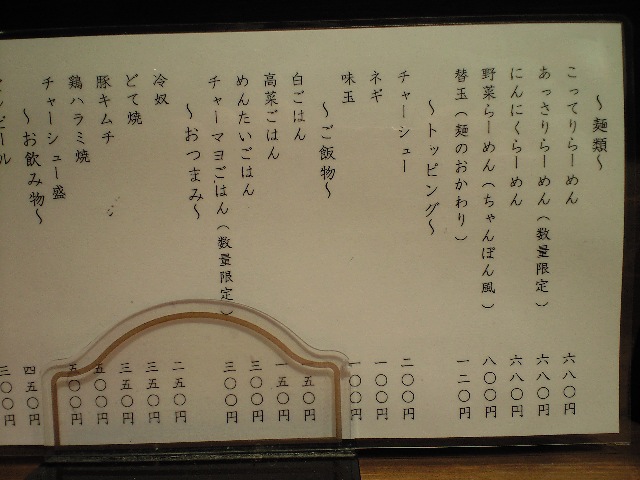 ～麺類～
こってりらーめん 六八〇円
あっさりらーめん（数量限定） 六八〇円
にんにくらーめん 六八〇円
野菜らーめん（ちゃんぽん風） 八〇〇円
替玉（麺のおかわり） 一二〇円
～トッピング～
チャーシュー 二〇〇円
ネギ 一〇〇円
味玉 一〇〇円
～ご飯物～
白ごはん 五〇円
高菜ごはん 一五〇円
めんたいごはん 三〇〇円
チャーマヨごはん（数量限定） 三〇〇円
～おつまみ～
冷奴 二五〇円
どて焼 三五〇円
豚キムチ 三五〇円
鶏ハラミ焼 五〇〇円
チャーシュー盛 五〇〇円
～お飲み物～
ビール 四五〇円
三〇〇円